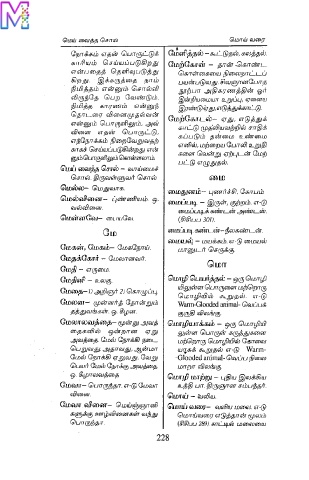 மெய் வைத்த சொல்
மொய் வரை
நோக்கம் எதன் பொருட்டுக்
காரியம் செய்யப்படுகிறது
என்பதைத் தெளிவுபடுத்து
கிறது. இக்கருத்தை நாம்
நிமித்தம் என்னும் சொல்லி
லிருந்தே பெற வேண்டும்.
நிமித்த காரணம் என்னுந்
தொடரை வினைமுதல்வன்
என்னும் பொருளிலும், அவ்
வினை எதன் பொருட்டு,
எந்நோக்கம் நிறைவேறுவதற்
காகச் செய்யப்படுகின்றது என்
னும் பொருளிலும் கொள்ளலாம்.
மெய் வைத்த சொல் – வாய்மைச்
சொல். திருவள்ளுவர் சொல்.
மெல்ல– மெதுவாக.
மெல்வினை – புண்ணியம். ஒ.
வல்வினை.
மெள்ளவே– பையவே.
மே
மேகன், மேகம்– மேகநோய்.
மேதக்கோர் – மேலானவர்.
மேதி – எருமை.
மேதினி – உலகு.
மேதை–1) அறிஞர் 2) கொழுப்பு.
மேலன– முன்னர்த் தோன்றும்
தத்துவங்கள். ஒ. கீழன.
மேலாலவத்தை– மூன்று அவத்
தைகளில் ஒன்றான ஏறு
அவத்தை மேல் நோக்கி நடை
பெறுவது. அதாவது, ஆன்மா
மேல் நோக்கி ஏறுவது. வேறு
பெயர் மேல் நோக்கு அவத்தை.
ஒ. கீழாலவத்தை
மேவா– பொருந்தா. எ-டு மேவா
வினை.
மேவா வினை– மெய்ஞ்ஞானி
களுக்கு ஊழ்வினைகள் வந்து
பொருந்தா.
மேளித்தல் – கூட்டுதல், கலத்தல்.
மேற்கோள் – தான் கொண்ட
கொள்கையை நிலைநாட்டப்
பயன்படுவது. சிவஞானபோத
நூற்பா அதிகரணத்தின் ஓர்
இன்றியமையா உறுப்பு. ஏனைய
இரண்டு ஏது, எடுத்துக்காட்டு.
மேற்கோடல்– ஏது, எடுத்துக்
காட்டு முதலியவற்றில் சாதிக்
கப்படும் தன்மை உண்மை
எனில், மற்றைய போலி உறுதி
களை வென்று ஏற்புடன் மேற்
பட்டு எழுதுதல்.
மை
மைதுனம்– புணர்ச்சி. கோயம்
மைப்படி – இருள், குற்றம். எ-டு
மைப்படிக் கண்டன் அண்டன்.
(சிசிபப 301).
மைப்படி கண்டன்–நீலகண்டன்.
மையல் – மயக்கம். எ-டு மையல்
மானுடர் செருக்கு.
மொ
மொழி பெயர்த்தல் – ஒரு மொழி
யிலுள்ள பொருளை மற்றொரு
மொழியில் கூறுதல். எ-டு
Warm-blooded animal- வெப்பக்
குருதி விலங்கு.
மொழியாக்கம் – ஒரு மொழியி
லுள்ள பொருள் கருத்துகளை
மற்றொரு மொழியில் கோவை
யாகக் கூறுதல் எ-டு Warm-
blooded animal- வெப்பநிலை
மாறா விலங்கு.
மொழி மாற்று – புதிய இலக்கிய
உத்தி. பா. திருஞான சம்பந்தர்.
மொய் – வலிய.
மொய் வரை– வலிய மலை. எ-டு
மொய்வரை எடுத்தான் மூலம்
(சிசிபப 289). காட்டில் மலையை
228